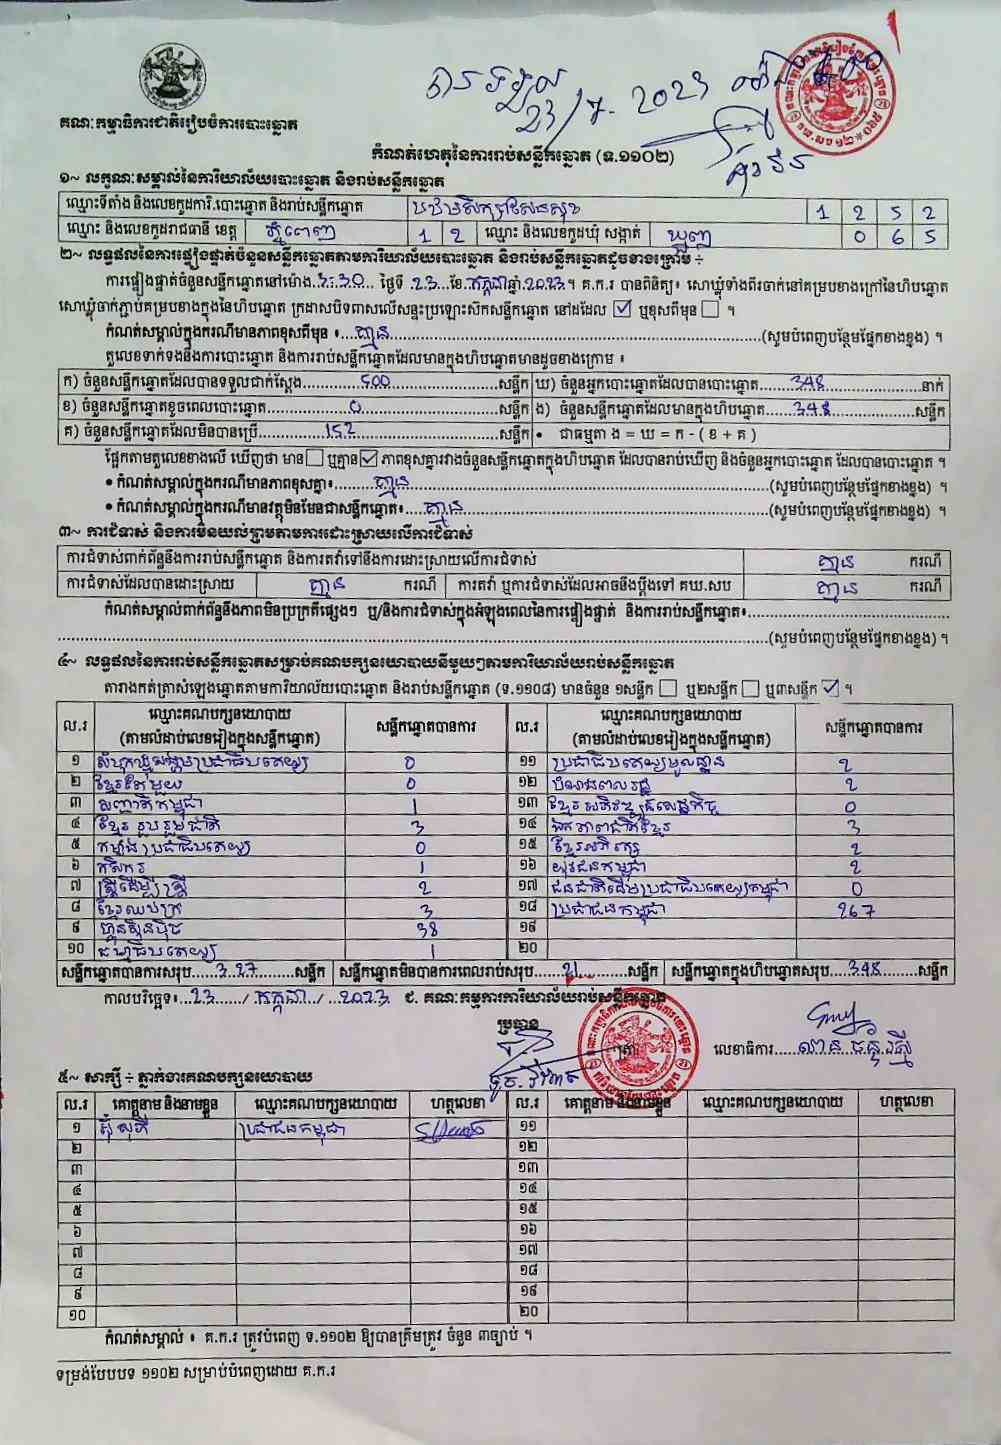 បានទទួល
23/7-2023
គណៈកម្មាធិការជាតិរៀបចំការបោះឆ្នោត
កំណត់ហេតុនៃការរាប់សន្លឹកឆ្នោត (ទ.១១០២)
១~ លក្ខណៈសម្គាល់នៃការិយាល័យបោះឆ្នោត និងរាប់សន្លឹកឆ្នោត
ឈ្មោះទីតាំង និងលេខកូដការិ.បោះឆ្នោត និងរាប់សន្លឹកឆ្នោត 1 2 5 2
ឈ្មោះ និងលេខកូដរាជធានី ខេត្ត ភ្នំពេញ 1 2 ឈ្មោះ និងលេខកូដឃុំ សង្កាត់ ឃ្មួញ 0 6 5
២~ លទ្ធផលនៃការផ្ទៀងផ្ទាត់ចំនួនសន្លឹកឆ្នោតតាមការិយាល័យបោះឆ្នោត និងរាប់សន្លឹកឆ្នោតដូចខាងក្រោម ÷
ការផ្ទៀងផ្ទាត់ចំនួនសន្លឹកឆ្នោតនៅម៉ោង.3:30... ថ្ងៃទី .23...ខែ.កក្កដា.ឆ្នាំ.2023.។ គ.ក.រ បានពិនិត្យ៖ សោឃ្លុំទាំងពីរចាក់នៅគម្របខាងក្រៅនៃហិបឆ្នោត
សោឃ្លុំចាក់ភ្ជាប់គម្របខាងក្នុងនៃហិបឆ្នោត ក្រដាសបិទពាសលើសន្ទះប្រឡោះស៊កសន្លឹកឆ្នោត នៅដដែល ☑ ឬខុសពីមុន ☐ ។
កំណត់សម្គាល់ក្នុងករណីមានភាពខុសពីមុន ៖....គ្មាន....(សូមបំពេញបន្ថែមផ្នែកខាងខ្នង) ។
តួលេខទាក់ទងនឹងការបោះឆ្នោត និងការរាប់សន្លឹកឆ្នោតដែលមានក្នុងហិបឆ្នោតមានដូចខាងក្រោម ៖
ក) ចំនួនសន្លឹកឆ្នោតដែលបានទទួលជាក់ស្តែង....500....សន្លឹក ឃ) ចំនួនអ្នកបោះឆ្នោតដែលបានបោះឆ្នោត....348....នាក់
ខ) ចំនួនសន្លឹកឆ្នោតខូចពេលបោះឆ្នោត....0....សន្លឹក ង) ចំនួនសន្លឹកឆ្នោតដែលមានក្នុងហិបឆ្នោត....348....សន្លឹក
គ) ចំនួនសន្លឹកឆ្នោតដែលមិនបានប្រើ....152....សន្លឹក • ជាធម្មតា ង = ឃ = ក - ( ខ + គ )
ផ្អែកតាមតួលេខខាងលើ ឃើញថា មាន ☐ ឬគ្មាន ☑ ភាពខុសគ្នារវាងចំនួនសន្លឹកឆ្នោតក្នុងហិបឆ្នោត ដែលបានរាប់ឃើញ និងចំនួនអ្នកបោះឆ្នោត ដែលបានបោះឆ្នោត ។
• កំណត់សម្គាល់ក្នុងករណីមានភាពខុសគ្នា៖....គ្មាន....(សូមបំពេញបន្ថែមផ្នែកខាងខ្នង) ។
• កំណត់សម្គាល់ក្នុងករណីមានវត្ថុមិនមែនជាសន្លឹកឆ្នោត៖....គ្មាន....(សូមបំពេញបន្ថែមផ្នែកខាងខ្នង) ។
៣~ ការជំទាស់ និងការមិនយល់ព្រមតាមការដោះស្រាយលើការជំទាស់
ការជំទាស់ពាក់ព័ន្ធនឹងការរាប់សន្លឹកឆ្នោត និងការតវ៉ាទៅនឹងការដោះស្រាយលើការជំទាស់ គ្មាន ករណី
ការជំទាស់ដែលបានដោះស្រាយ គ្មាន ករណី ការតវ៉ា ឬការជំទាស់ដែលអាចនឹងប្តឹងទៅ គឃ.សប គ្មាន ករណី
កំណត់សម្គាល់ពាក់ព័ន្ធនឹងភាពមិនប្រក្រតីផ្សេងៗ ឬ/និងការជំទាស់ក្នុងអំឡុងពេលនៃការផ្ទៀងផ្ទាត់ និងការរាប់សន្លឹកឆ្នោត៖....
....(សូមបំពេញបន្ថែមផ្នែកខាងខ្នង) ។
៤~ លទ្ធផលនៃការរាប់សន្លឹកឆ្នោតសម្រាប់គណបក្សនយោបាយនីមួយៗតាមការិយាល័យរាប់សន្លឹកឆ្នោត
តារាងកត់ត្រាសំឡេងឆ្នោតតាមការិយាល័យបោះឆ្នោត និងរាប់សន្លឹកឆ្នោត (ទ.១១០៨) មានចំនួន ១សន្លឹក ☐ ឬ២សន្លឹក ☐ ឬ៣សន្លឹក ☑ ។
ល.រ ឈ្មោះគណបក្សនយោបាយ (តាមលំដាប់លេខរៀងក្នុងសន្លឹកឆ្នោត) សន្លឹកឆ្នោតបានការ ល.រ ឈ្មោះគណបក្សនយោបាយ (តាមលំដាប់លេខរៀងក្នុងសន្លឹកឆ្នោត) សន្លឹកឆ្នោតបានការ
១ សំបុកឃ្មុំសង្គមប្រជាធិបតេយ្យ 0 ១១ ប្រជាធិបតេយ្យមូលដ្ឋាន 2
២ ខ្មែរតែមួយ 0 ១២ បំណងពលរដ្ឋ 2
៣ សញ្ជាតិកម្ពុជា 1 ១៣ ខ្មែរអភិវឌ្ឍន៍សេដ្ឋកិច្ច 0
៤ ខ្មែររួបរួមជាតិ 3 ១៤ ឯកភាពជាតិខ្មែរ 3
៥ កម្លាំងប្រជាធិបតេយ្យ 0 ១៥ ខ្មែរអភិរក្ស 2
៦ កសិករ 1 ១៦ យុវជនកម្ពុជា 2
៧ ស្ត្រីដើម្បីស្ត្រី 2 ១៧ ជនជាតិដើមប្រជាធិបតេយ្យកម្ពុជា 0
៨ ខ្មែរឈប់ក្រ 3 ១៨ ប្រជាជនកម្ពុជា 267
៩ ហ្វ៊ុនស៊ិនប៉ិច 38 ១៩
១០ ធម្មាធិបតេយ្យ 1 ២០
សន្លឹកឆ្នោតបានការសរុប....327....សន្លឹក សន្លឹកឆ្នោតមិនបានការពេលរាប់សរុប....21....សន្លឹក សន្លឹកឆ្នោតក្នុងហិបឆ្នោតសរុប....348....សន្លឹក
កាលបរិច្ឆេទ៖...23....../.កក្កដា../...2023 ជ. គណៈកម្មការការិយាល័យរាប់សន្លឹកឆ្នោត
ប្រធាន
ត្រា លេខាធិការ
៥~ សាក្សី ÷ ភ្នាក់ងារគណបក្សនយោបាយ
ល.រ គោត្តនាម និងនាមខ្លួន ឈ្មោះគណបក្សនយោបាយ ហត្ថលេខា ល.រ គោត្តនាម និងនាមខ្លួន ឈ្មោះគណបក្សនយោបាយ ហត្ថលេខា
១ ប្រជាជនកម្ពុជា ១១
២ ១២
៣ ១៣
៤ ១៤
៥ ១៥
៦ ១៦
៧ ១៧
៨ ១៨
៩ ១៩
១០ ២០
កំណត់សម្គាល់ ៖ គ.ក.រ ត្រូវបំពេញ ទ.១១០២ ឱ្យបានត្រឹមត្រូវ ចំនួន ៣ច្បាប់ ។
ទម្រង់បែបបទ ១១០២ សម្រាប់បំពេញដោយ គ.ក.រ